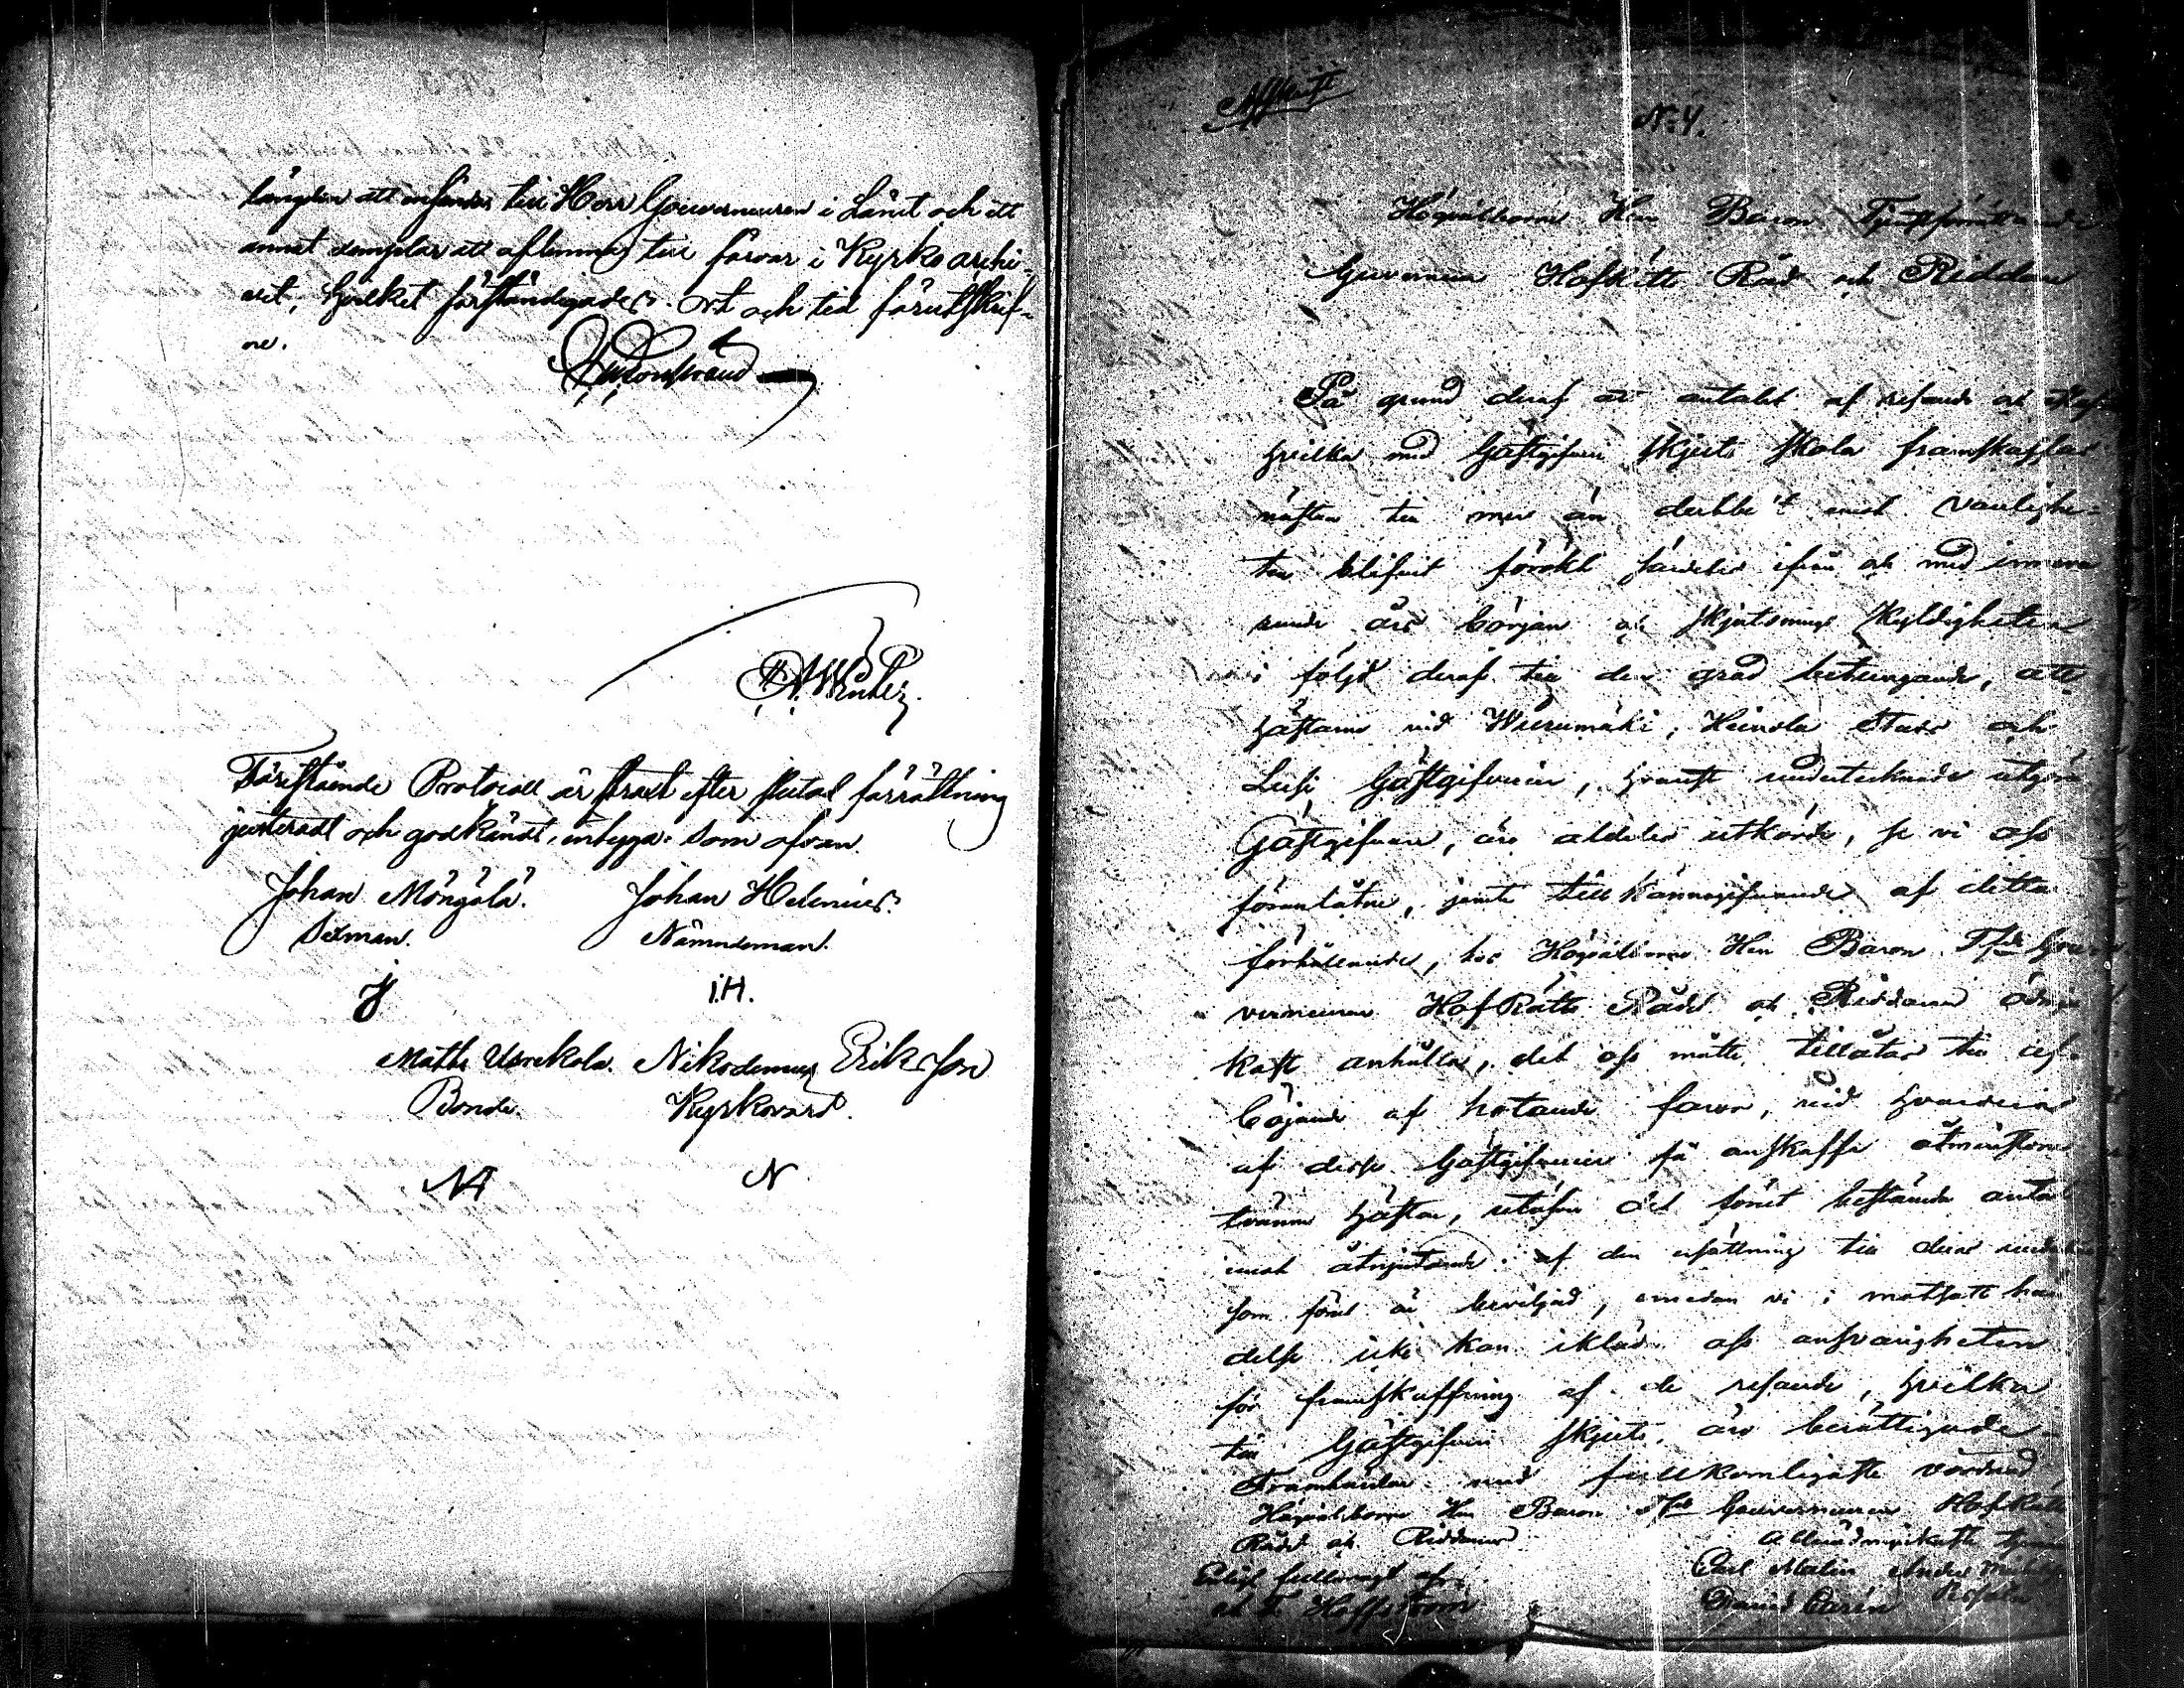 länglen att insändas till Herr Gouverneuren i Länet och ett
annat exemplar att aflemnas till förvar i Kyrko archi-
vet; hvilket förständigades. Ort och tid förutskrif-
ne.
Föreståënde Protocoll är straxt efter slutad förrättning
justeradt och godkändt, intyga: som ofvan
Johan Möngölä. Johan Helenius.
Sexman. Nämndeman.
I.H.
Matts Uorekola. Nikodemus Eriksson
Bonde. Kyrkovärd.
N
Afskrift
N:4.
Högvälborne Herr Baron Tjenstförrättande
Guverneur HofRätts Råd och Riddare
På grund deraf att antalet af resande och
hvilka med Gästgifveri skjuts skola framskaffas
nästan till mer än dubbelt emot vanlighe-
ten blifvit förökt särdeles ifrån och med innva-
rande års början och skjutsnings skyldigheten
i följd deraf till den grad betungande, att
hästarne vid Wierumäki, Heinola Stads och
Lusi Gästgifverier, hvarest undertecknade utgöra
Gästgifvare, äro aldeles utkörde, se vi oss
föranlåtne, jemte tillkännagifvande af detta
förhållande, hos Högvälborne Herr Baron Tf Gou-
verneuren HofRätts Rådet och Riddaren ödmju-
kast anhålla, det oss måtte tillåtas till af-
böjande af hotande faror, vid hvardera
af desse Gästgifverier få anskaffa åtminstone
tvänne hästar, utöfver det förut bestämda antal
emot åtnjutande af den ersättning till deras underhåll
som förut är beviljad, emedan vi i motsatt hän-
delse icke kan ikläda oss ansvarigheten
för framskaffning af de resande, hvilka
till Gästgifveri skjuts äro berättigade
Framhärdar med fullkomligaste vördnad
Högvälborne Herr Baron Tf Gouverneuren HofRätts
Rådet och Riddarens Allerödmjukaste tjenare
Enligt fullmagt af Carl Malin Anders
A F Hoffström David Carén